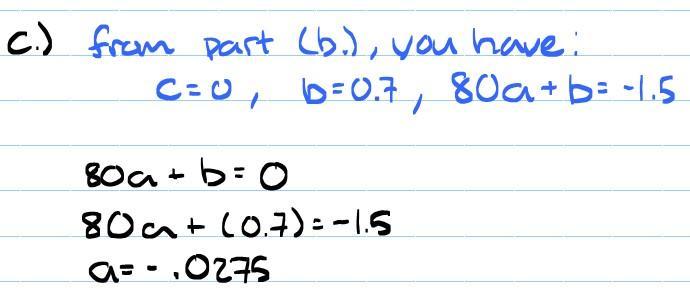 c.) from part (b.), you have:
c=0, b=0.7, 80a+b=-1.5
80a + b = 0
80a + (0.7) = -1.5
a= - .0275